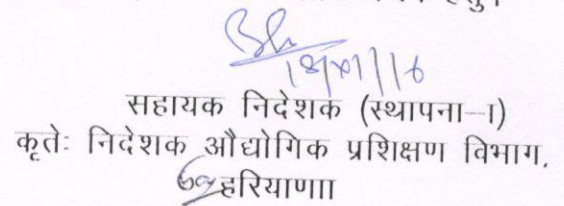 18/11/16
सहायक निदेशक (स्थापना–I)
कृतेः निदेशक औद्योगिक प्रशिक्षण विभाग,
हरियाणाा